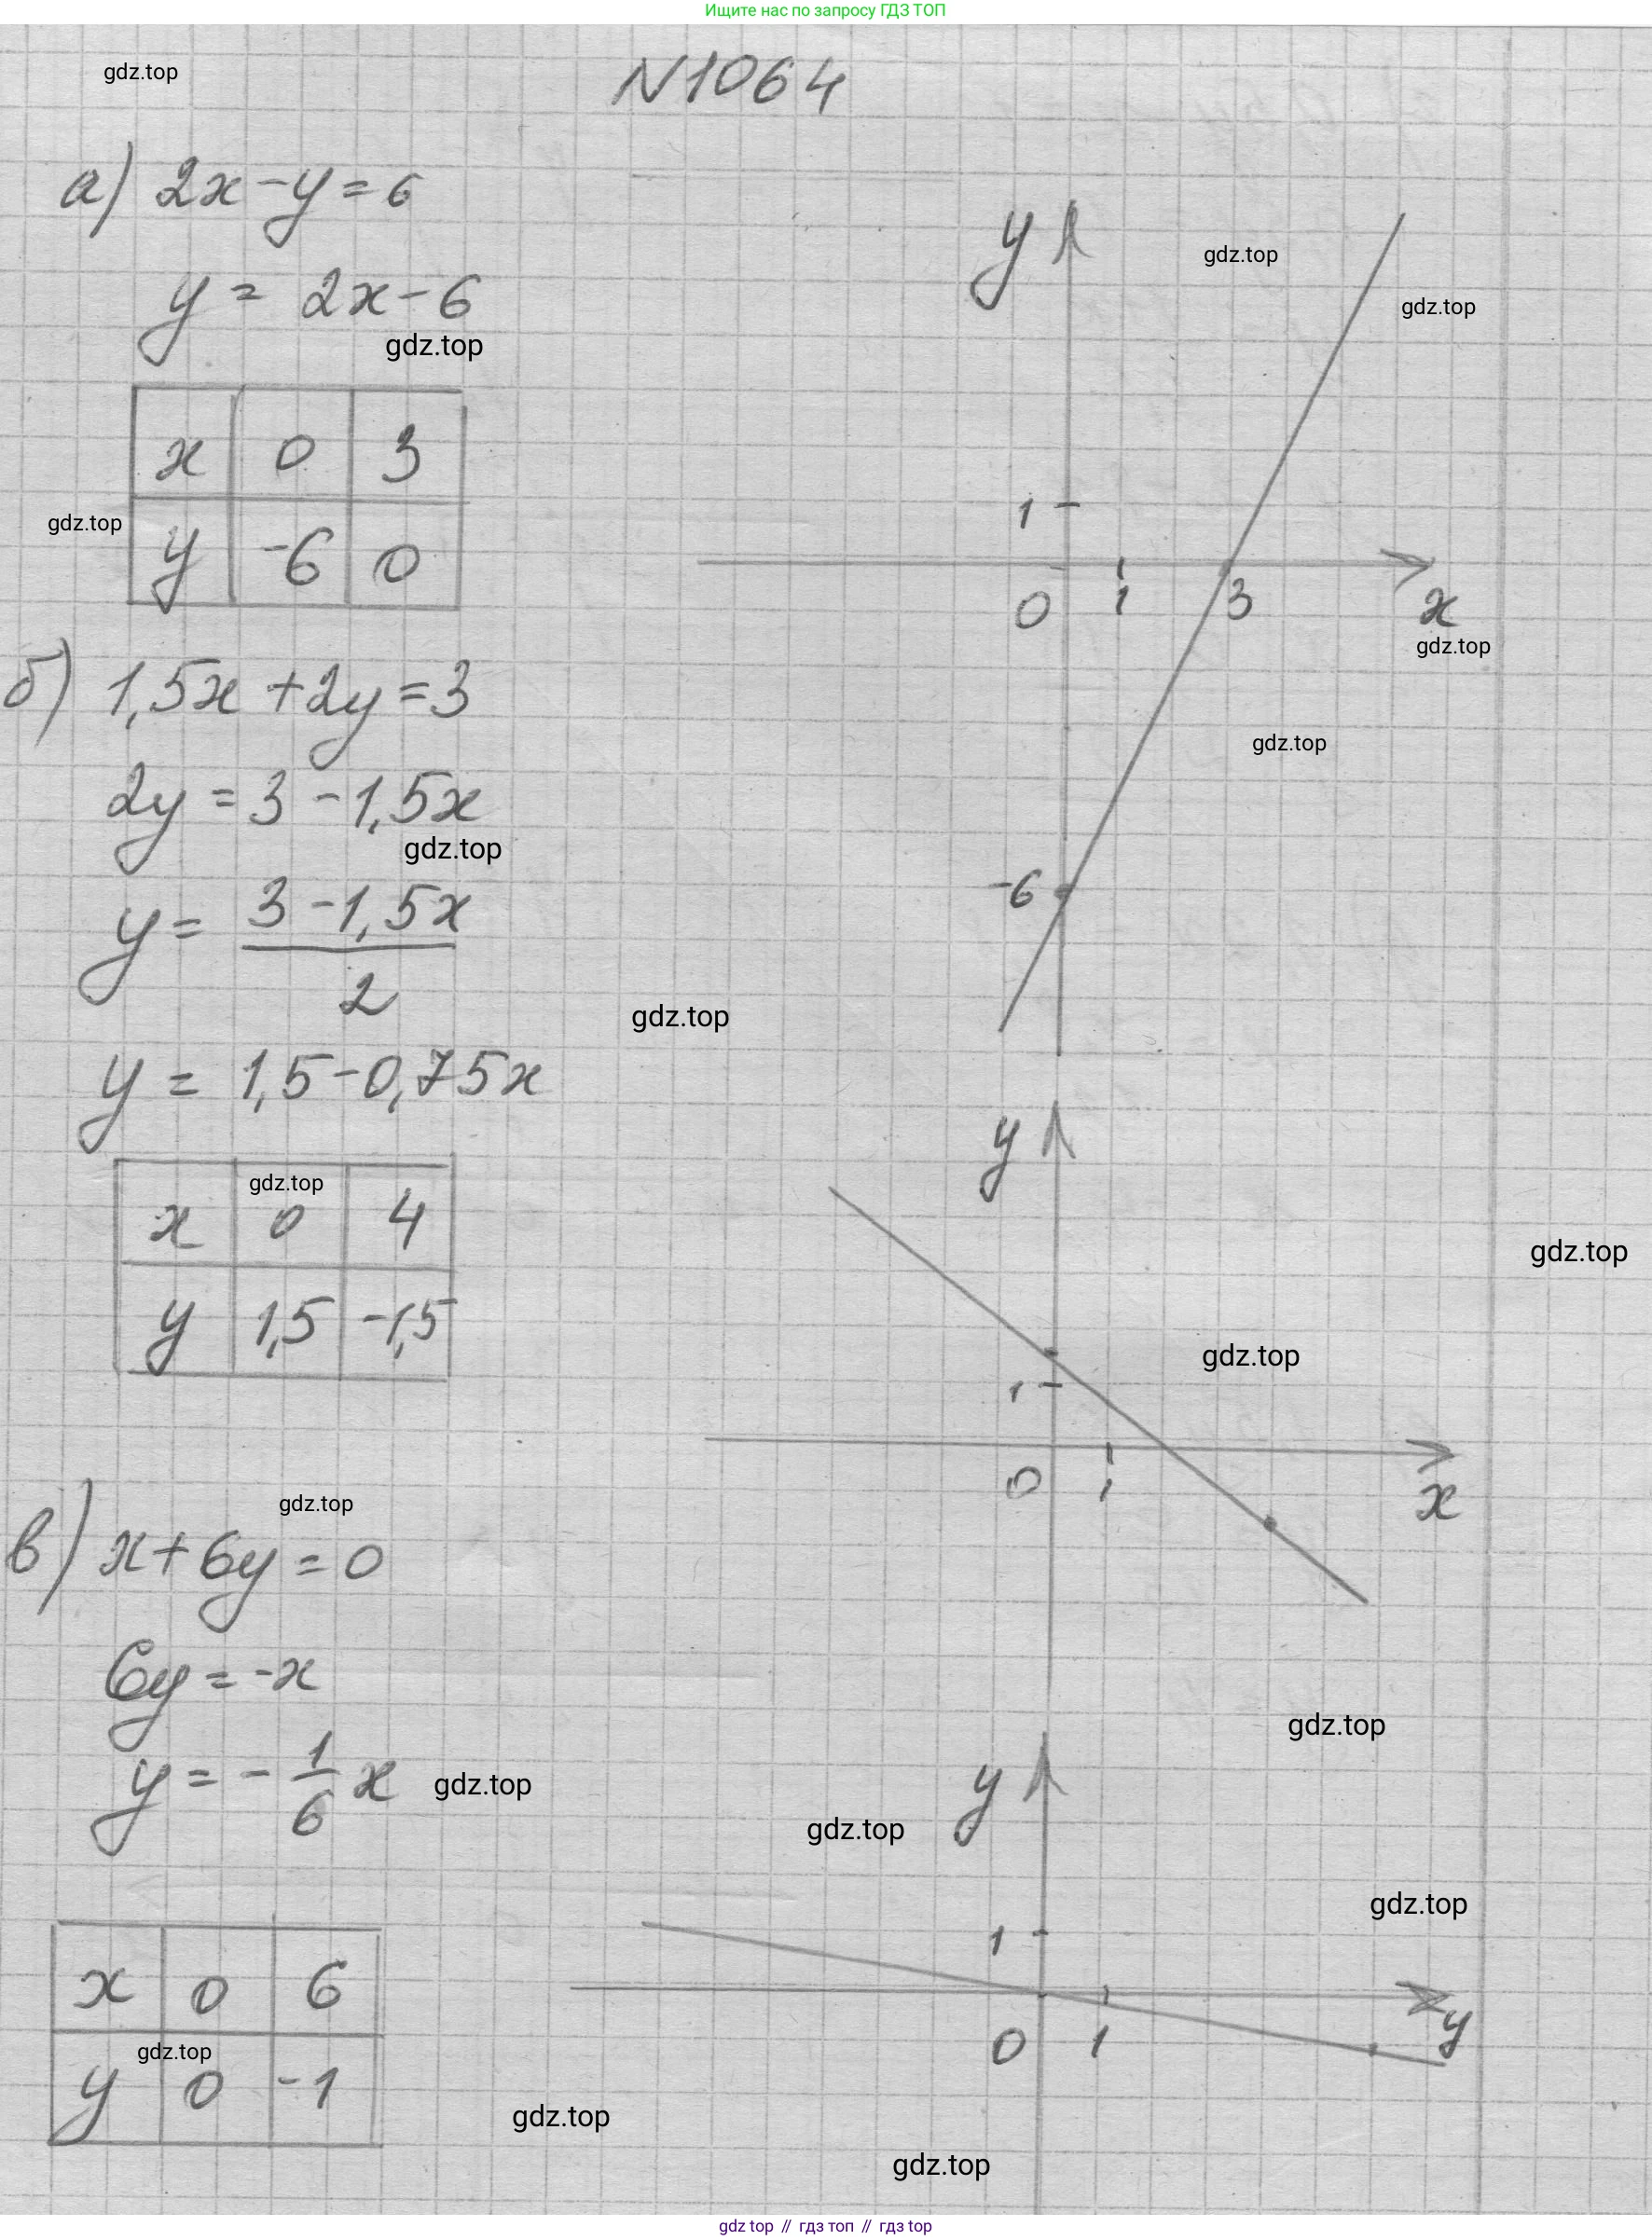 Ищите нас по запросу ГДЗ ТОП
gdz.top
N1064
а) 2x-y=6
y = 2x-6
gdz.top
x 0 3
gdz.top
y -6 0
y
gdz.top
gdz.top
1
0 1 3 x
gdz.top
gdz.top
-6
б) 1,5x+2y=3
2y=3-1,5x
gdz.top
y= 3-1,5x
2
gdz.top
y = 1,5-0,75x
gdz.top
x 0 4
y 1,5 -1,5
y
gdz.top
gdz.top
1
0 1 x
gdz.top
в) x+6y=0
6y=-x
y=-1/6 x
gdz.top
gdz.top
y
gdz.top
gdz.top
1
0 1 y
x 0 6
gdz.top
y 0 -1
gdz.top
gdz.top
gdz top // гдз топ // гдз top